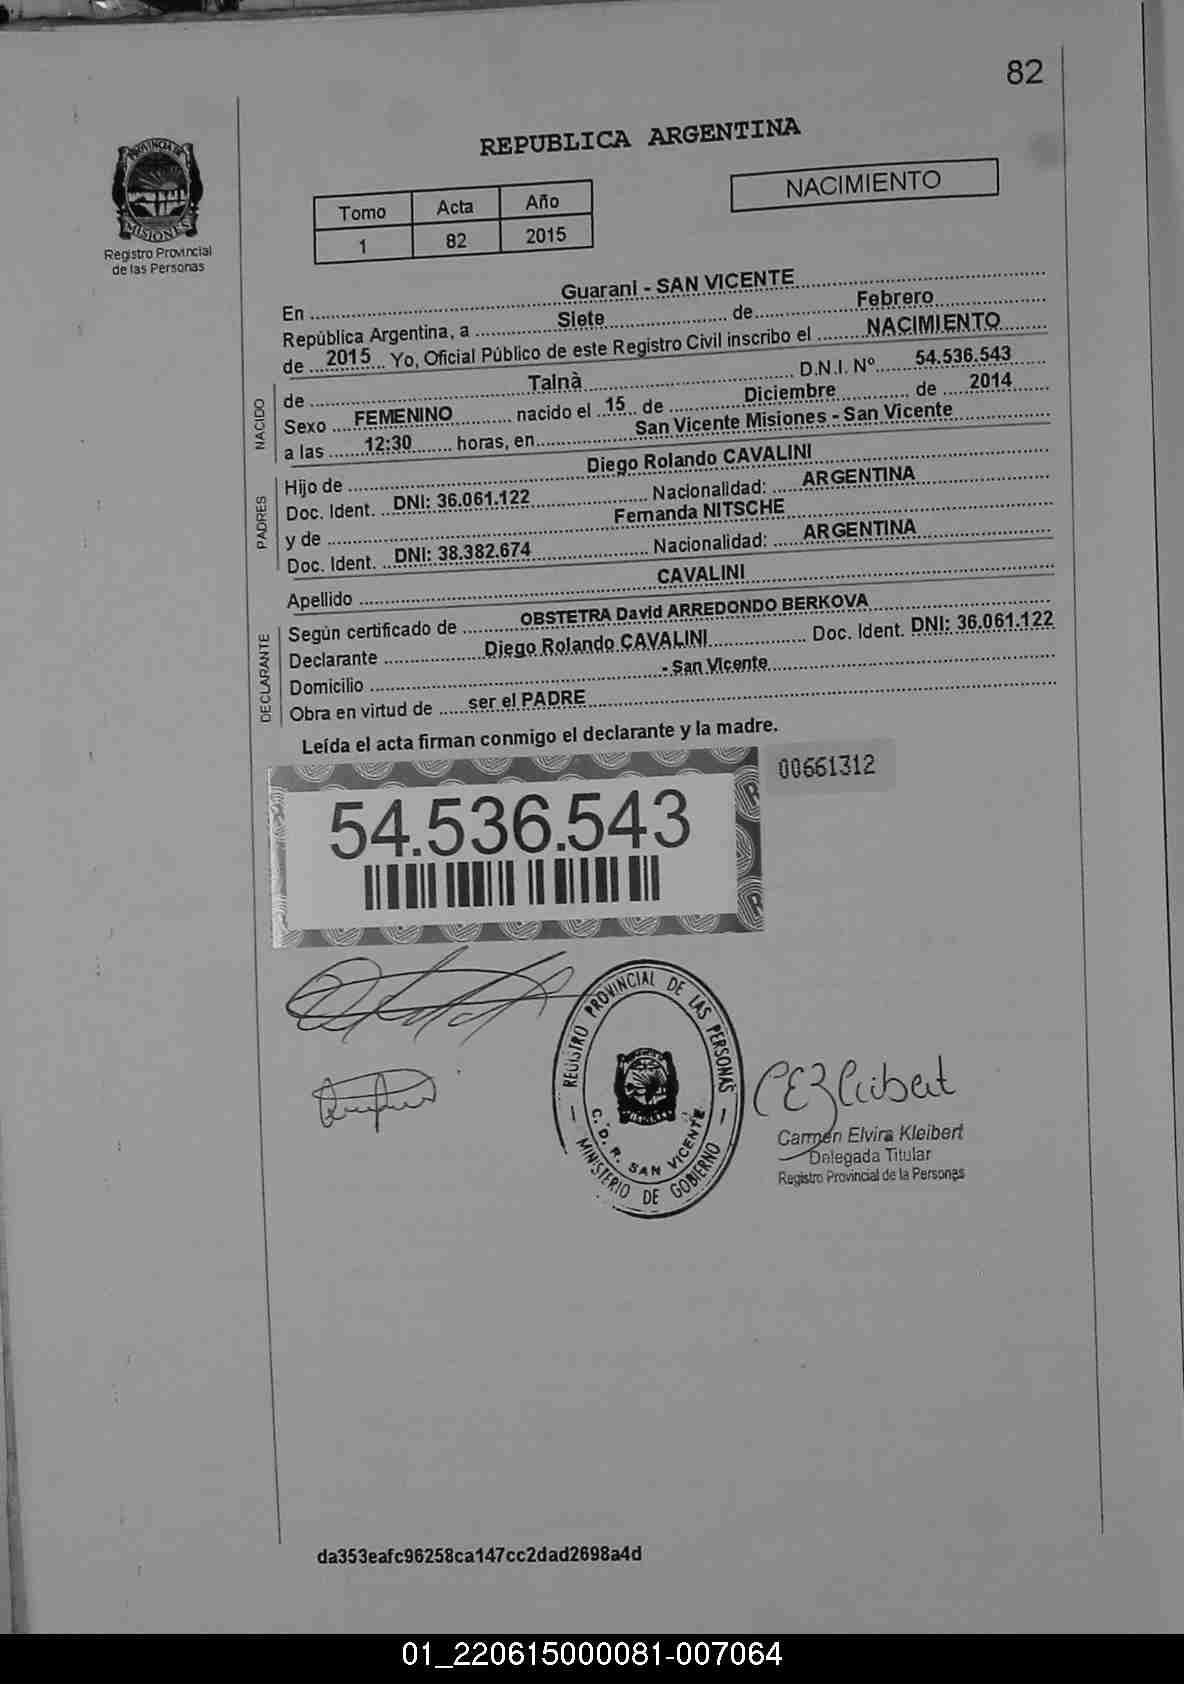 82
REPUBLICA ARGENTINA
NACIMIENTO
PROVINCIA DE
MISIONES
Registro Provincial
de las Personas
Tomo Acta Año
1 82 2015
En Guaraní - SAN VICENTE
República Argentina, a Siete de Febrero
de 2015 Yo, Oficial Público de este Registro Civil inscribo el NACIMIENTO
NACIDO
de Tainà D.N.I. Nº 54.536.543
Sexo FEMENINO nacido el 15 de Diciembre de 2014
a las 12:30 horas, en San Vicente Misiones - San Vicente
PADRES
Hijo de Diego Rolando CAVALINI
Doc. Ident. DNI: 36.061.122 Nacionalidad: ARGENTINA
y de Fernanda NITSCHE
Doc. Ident. DNI: 38.382.674 Nacionalidad: ARGENTINA
Apellido CAVALINI
DECLARANTE
Según certificado de OBSTETRA David ARREDONDO BERKOVA
Declarante Diego Rolando CAVALINI Doc. Ident. DNI: 36.061.122
Domicilio - San Vicente
Obra en virtud de ser el PADRE
Leída el acta firman conmigo el declarante y la madre.
00661312
54.536.543
REGISTRO PROVINCIAL DE LAS PERSONAS
C. D. R. SAN VICENTE
MINISTERIO DE GOBIERNO
Carmen Elvira Kleibert
Delegada Titular
Registro Provincial de la Personas
da353eafc96258ca147cc2dad2698a4d
01_220615000081-007064